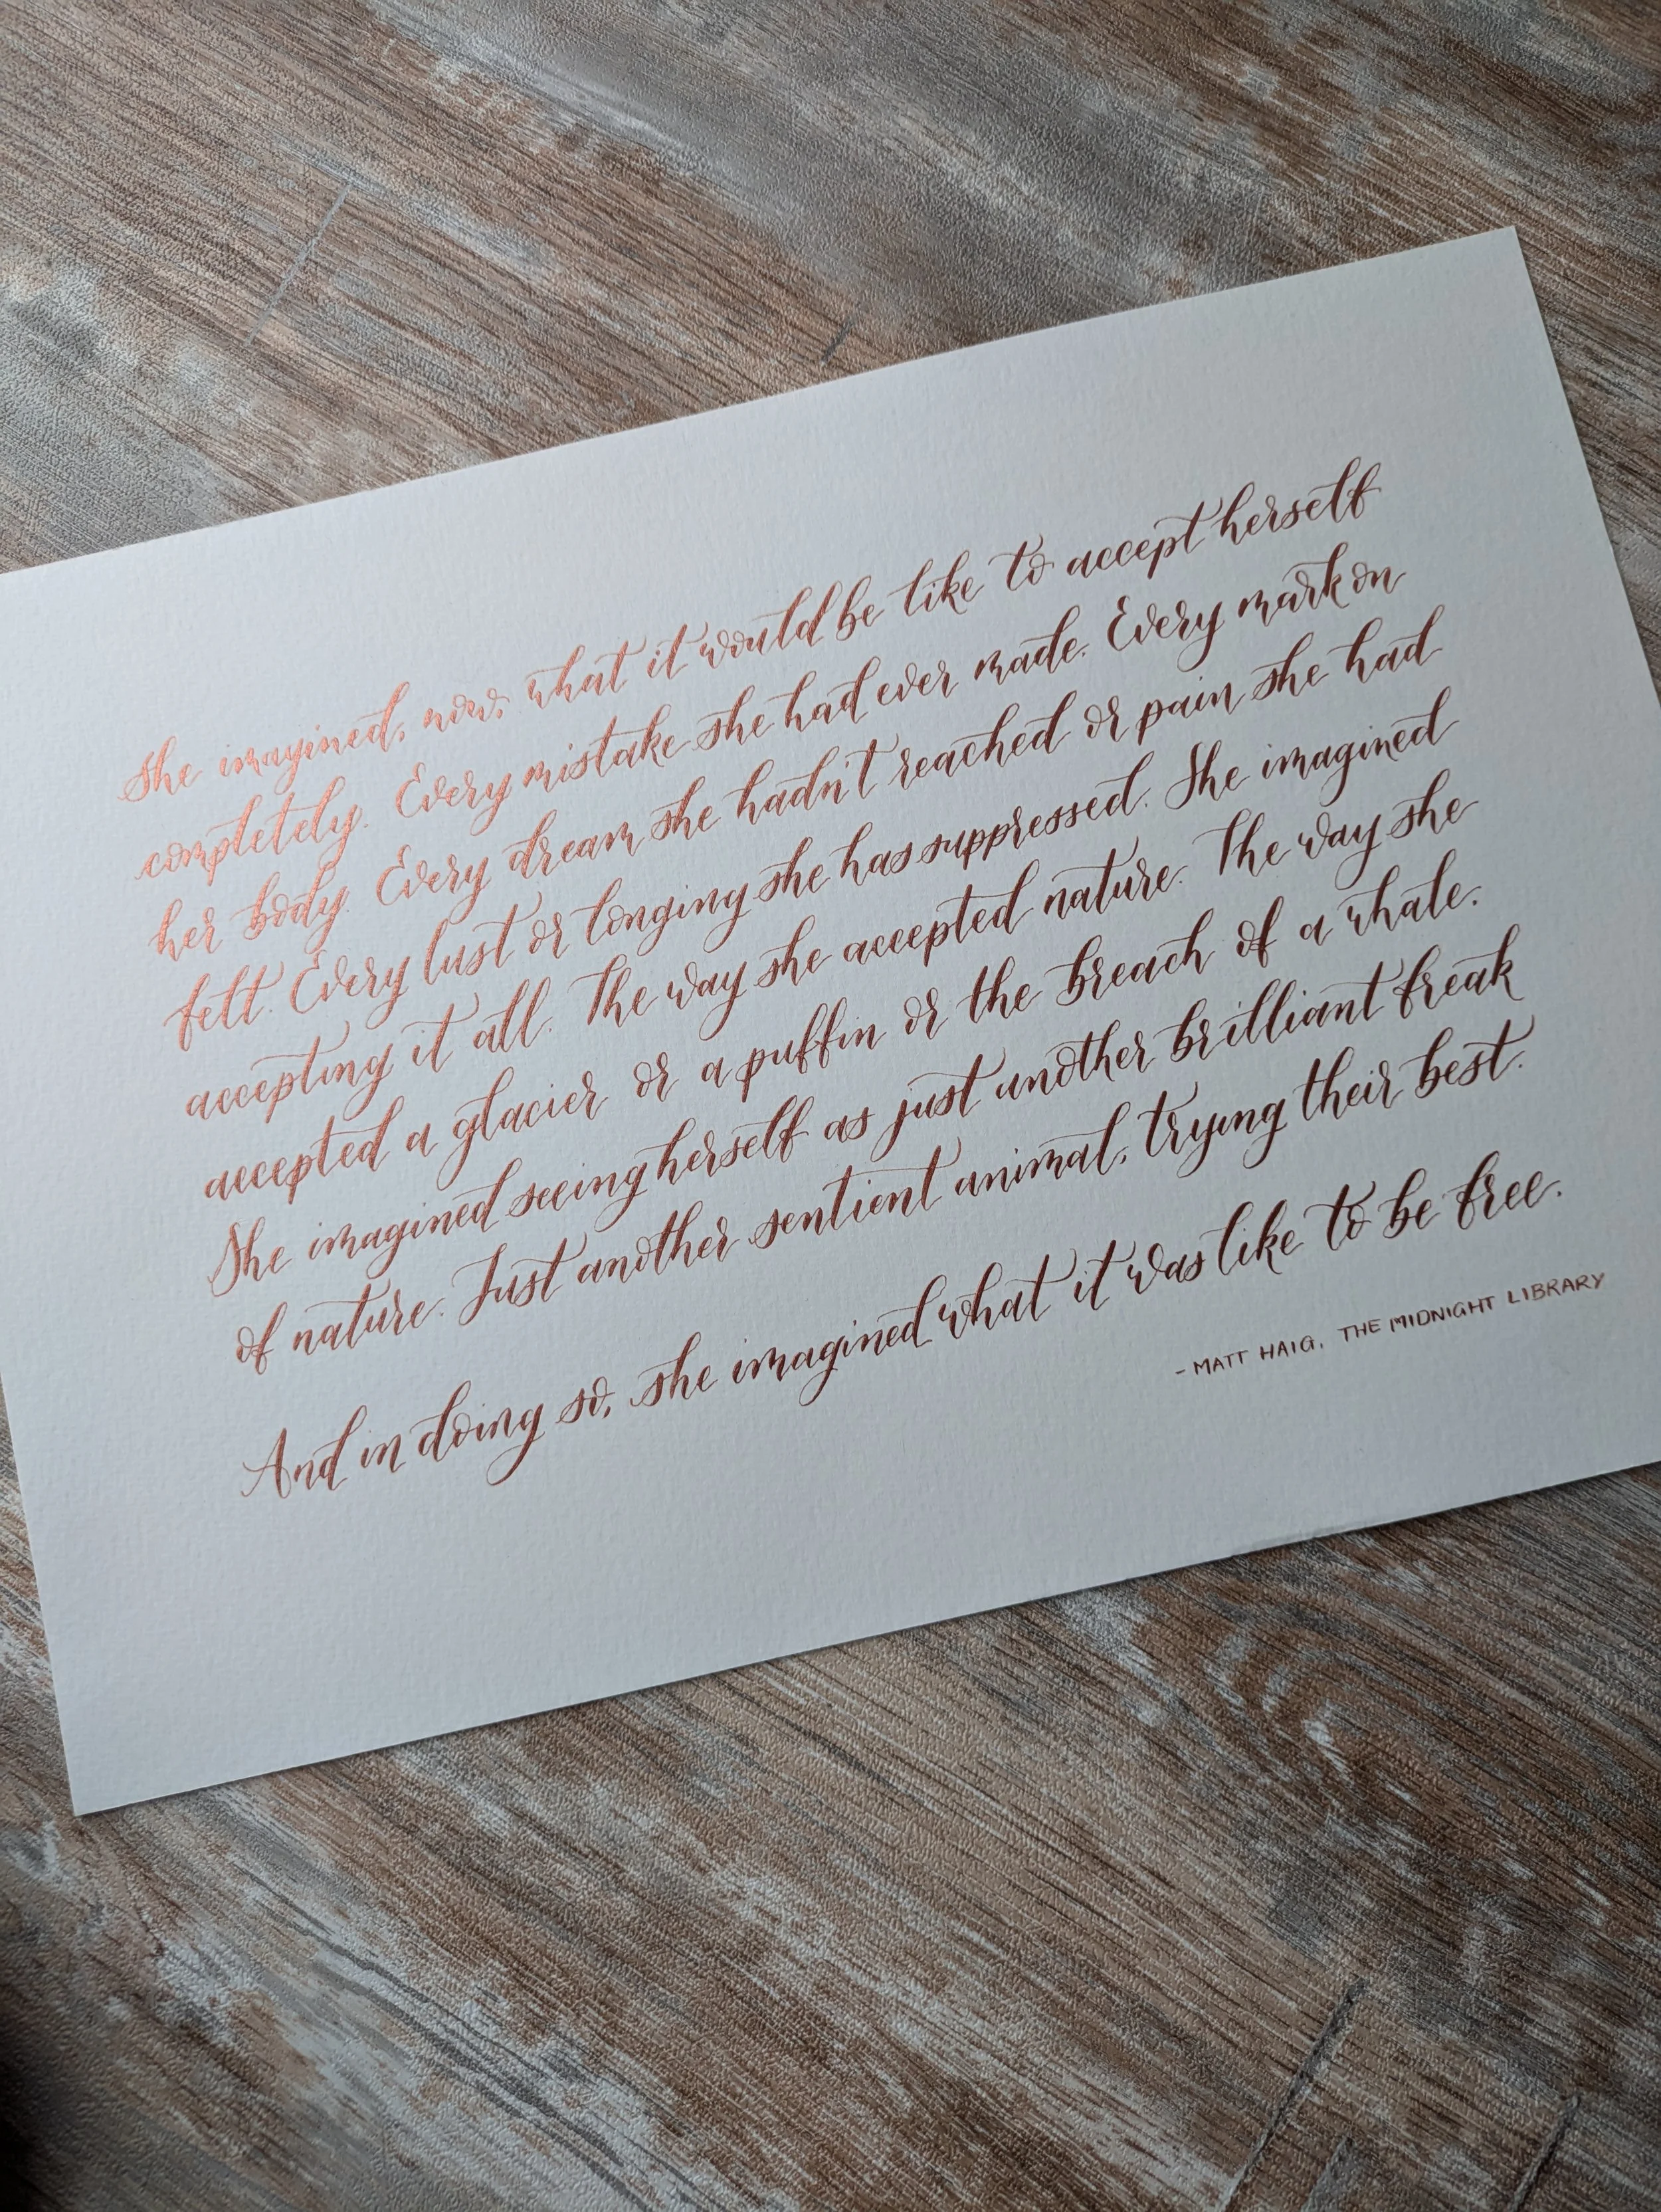 She imagined, now, what it would be like to accept herself
completely. Every mistake she had ever made. Every mark on
her body. Every dream she hadn't reached or pain she had
felt. Every lust or longing she has suppressed. She imagined
accepting it all. The way she accepted nature. The way she
accepted a glacier or a puffin or the breach of a whale.
She imagined seeing herself as just another brilliant freak
of nature. Just another sentient animal, trying their best.
And in doing so, she imagined what it was like to be free.
- MATT HAIG, THE MIDNIGHT LIBRARY